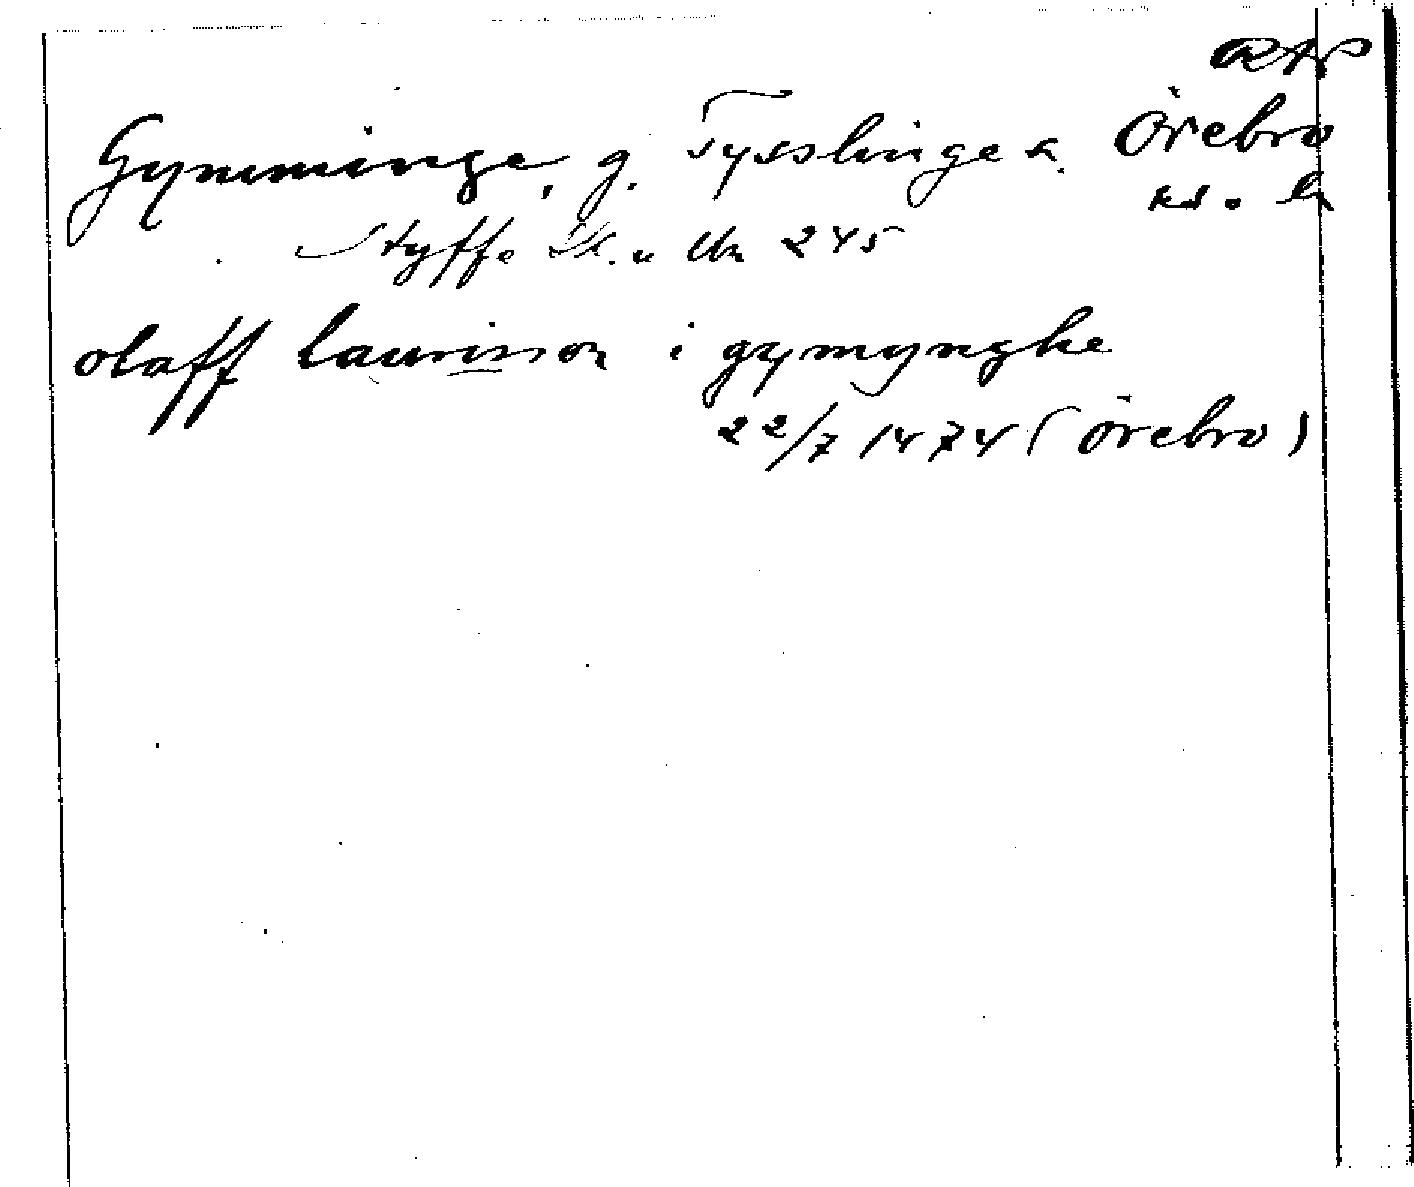 RAP
Gymminge, g. Tysslinge s. Örebro
hd. o. ln
Styffe Sk. u Un 245
olaff laurisson i gymynghe
22/7 1474 (Örebro)